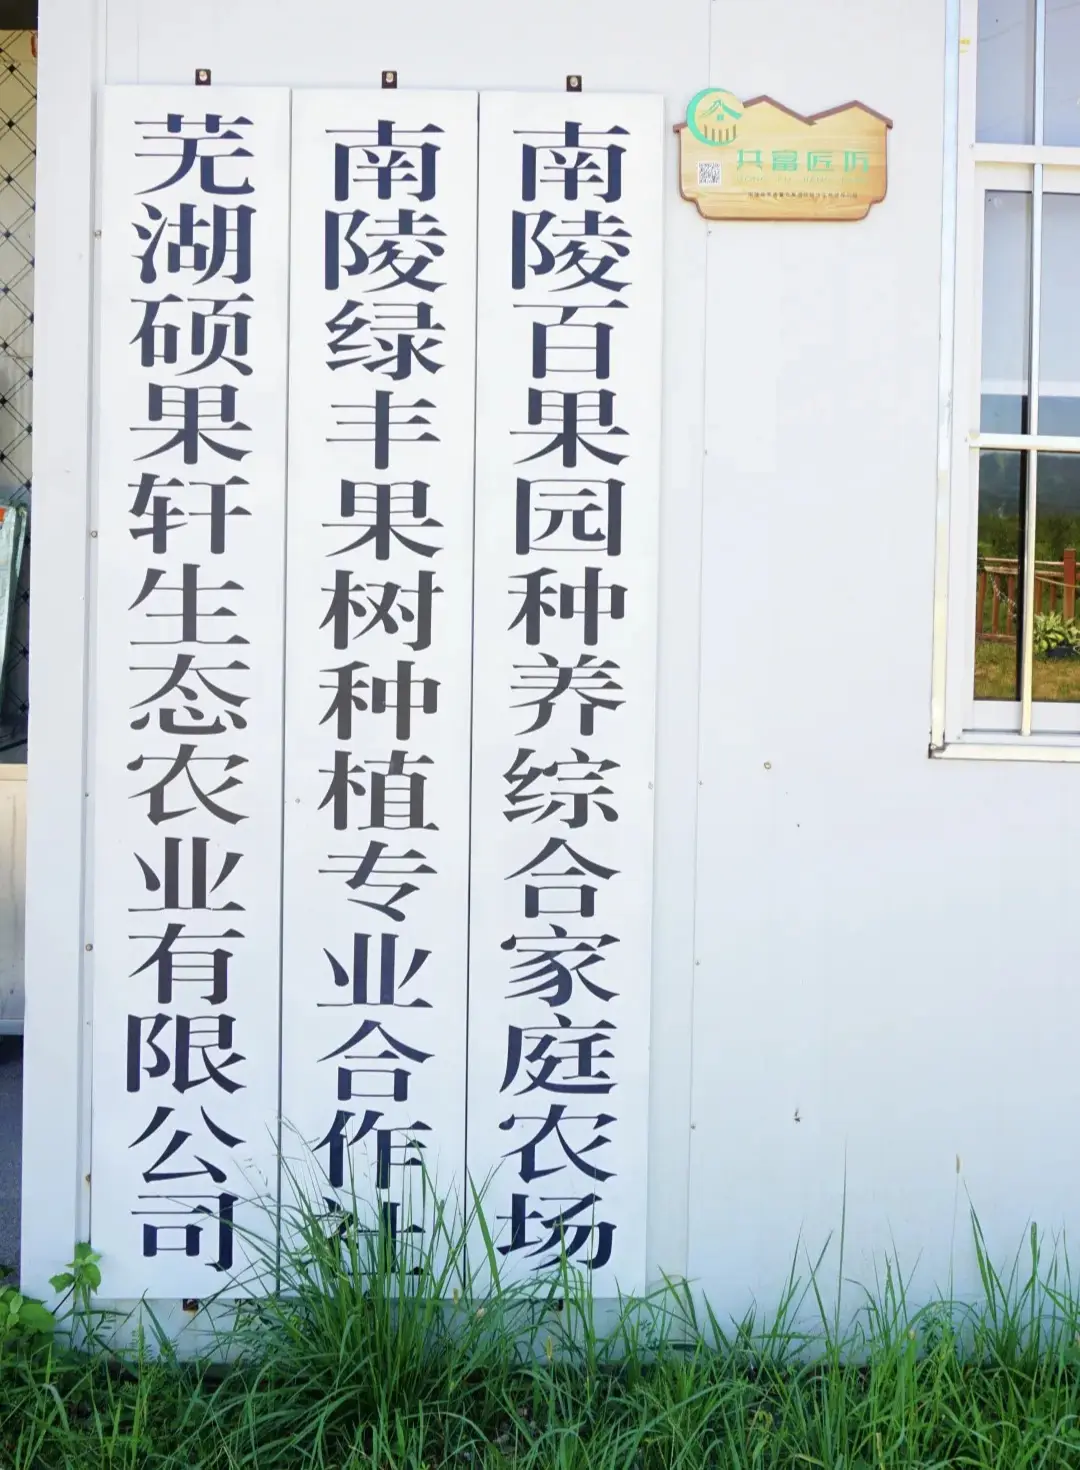 芜湖硕果轩生态农业有限公司
南陵绿丰果树种植专业合作社
南陵百果园种养综合家庭农场
共富匠坊